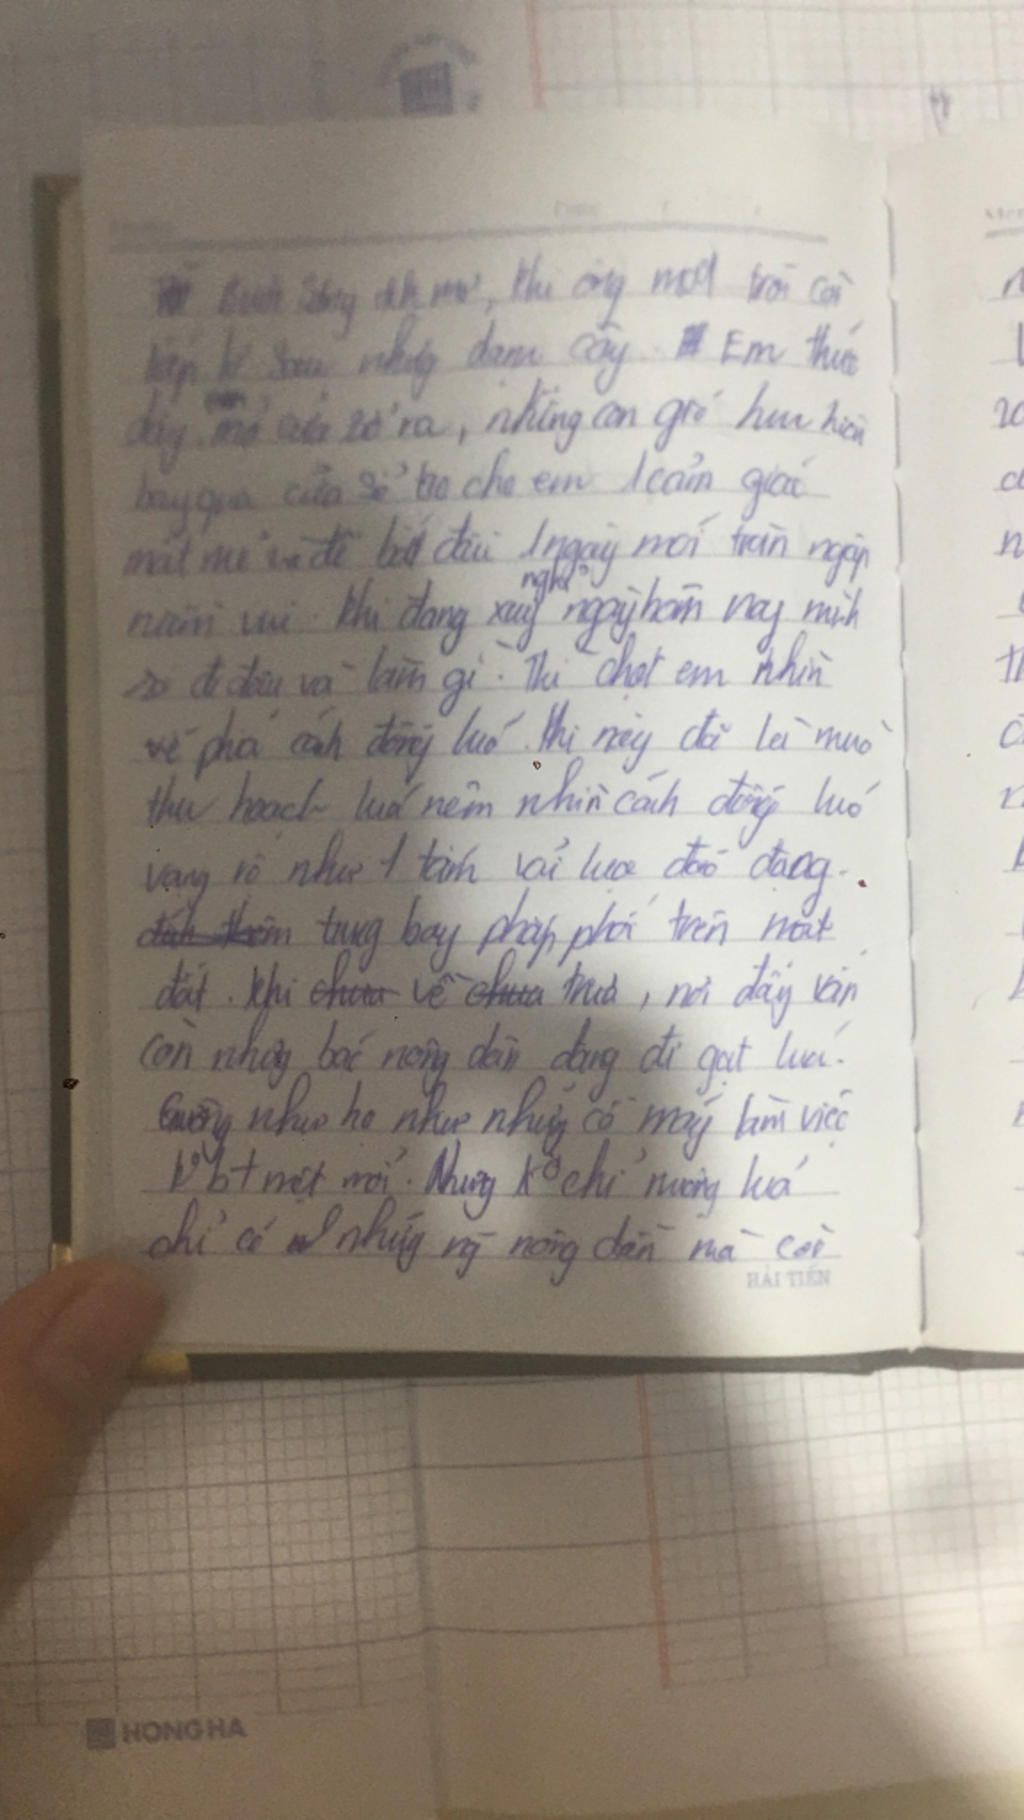 Buổi sáng tinh mơ, khi ông mặt trời còn
lấp ló sau những đám cây. Em thức
dậy mở cửa sổ ra, những cơn gió hưu hiêu
bay qua cửa sổ tạo cho em 1 cảm giác
mát mẻ và để bắt đầu 1 ngày mới tràn ngập
niềm vui. Khi đang suy nghĩ ngày hôm nay mình
sẽ đi đâu và làm gì. Thì chợt em nhìn
về phía cánh đồng luá. Khi này đã là muà
thu hoạch luá nêm nhìn cánh đồng luá
vàng rô như 1 tấm vải lụa đào đang
tung bay phấp phới trên mặt
đất. Khi về trưa, nơi đây vẫn
còn những bác nông dân đang đi gạt luá.
như họ như những cỗ máy làm việc
k bt mệt mỏi. Nhưng k chỉ ruộng luá
chỉ có những ng nông dân mà còn
HẢI TIẾN
HONG HA